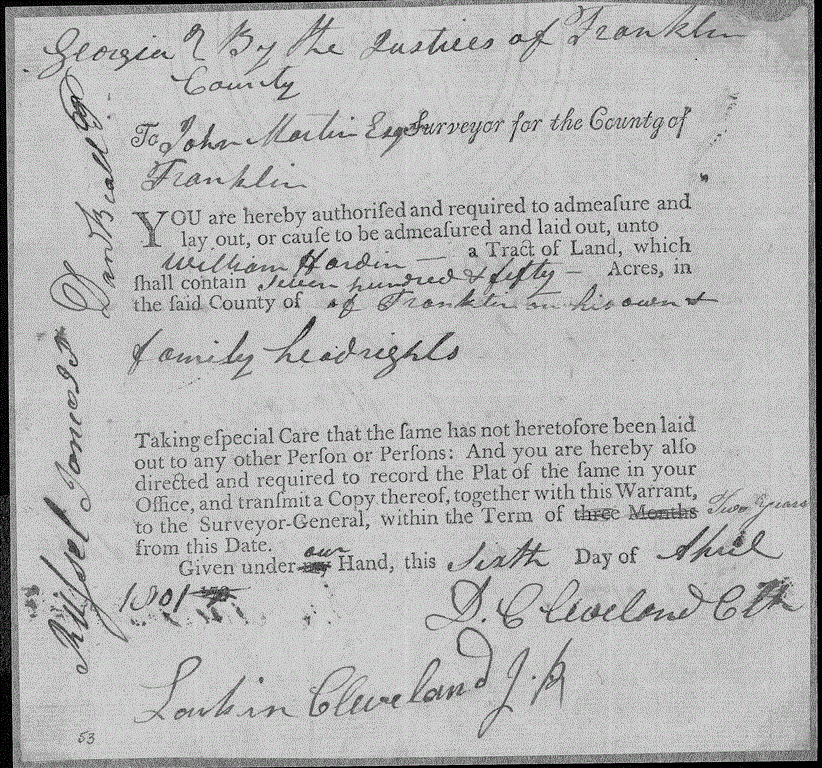 Georgia } By the Justices of Franklin
County
To John Martin Esqr Surveyor for the County of
Franklin
YOU are hereby authoriſed and required to admeaſure and
lay out, or cauſe to be admeaſured and laid out, unto
William Hardin — a Tract of Land, which
ſhall contain Seven hundred & fifty — Acres, in
the ſaid County of of Franklin on his own &
family headrights
Taking eſpecial Care that the ſame has not heretofore been laid
out to any other Perſon or Perſons: And you are hereby alſo
directed and required to record the Plat of the ſame in your
Office, and tranſmit a Copy thereof, together with this Warrant,
to the Surveyor-General, within the Term of three Months Two Years
from this Date.
our
Given under my Hand, this Sixth Day of April
1801
D. Cleveland
Larkin Cleveland J.P.
Russel Jones
53